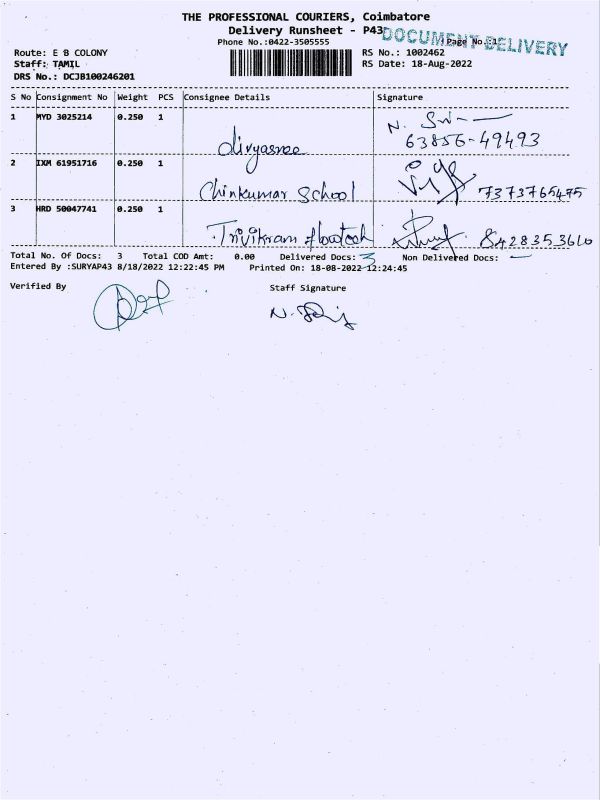 THE PROFESSIONAL COURIERS, Coimbatore
Delivery Runsheet - P43
DOCUMENT DELIVERY
Phone No.:0422-3505555
Page No.:1
Route: E B COLONY
RS No.: 1002462
Staff: TAMIL
RS Date: 18-Aug-2022
DRS No.: DCJB100246201
S No Consignment No Weight PCS Consignee Details Signature
1 MYD 3025214 0.250 1
divyasree
63856-49493
2 IXM 61951716 0.250 1
Chinkumar School
7373765475
3 HRD 50047741 0.250 1
Trivikram flowtech
8428353610
Total No. Of Docs: 3 Total COD Amt: 0.00 Delivered Docs: 3 Non Delivered Docs: —
Entered By :SURYAP43 8/18/2022 12:22:45 PM Printed On: 18-08-2022 12:24:45
Verified By Staff Signature